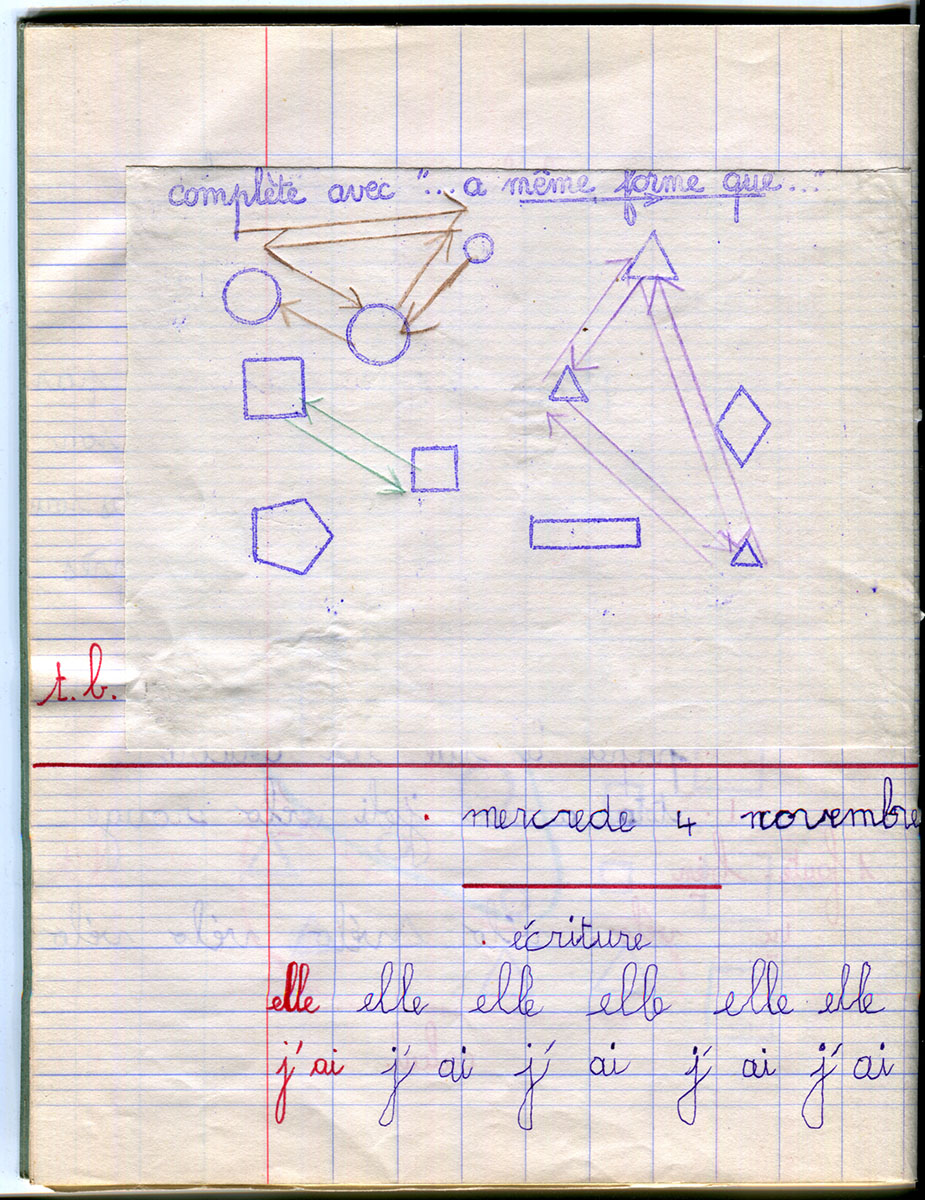 complète avec "... a même forme que..."
t.b.
mercrede 4 novembre
écriture
elle elle elle elle elle elle
j'ai j'ai j'ai j'ai j'ai